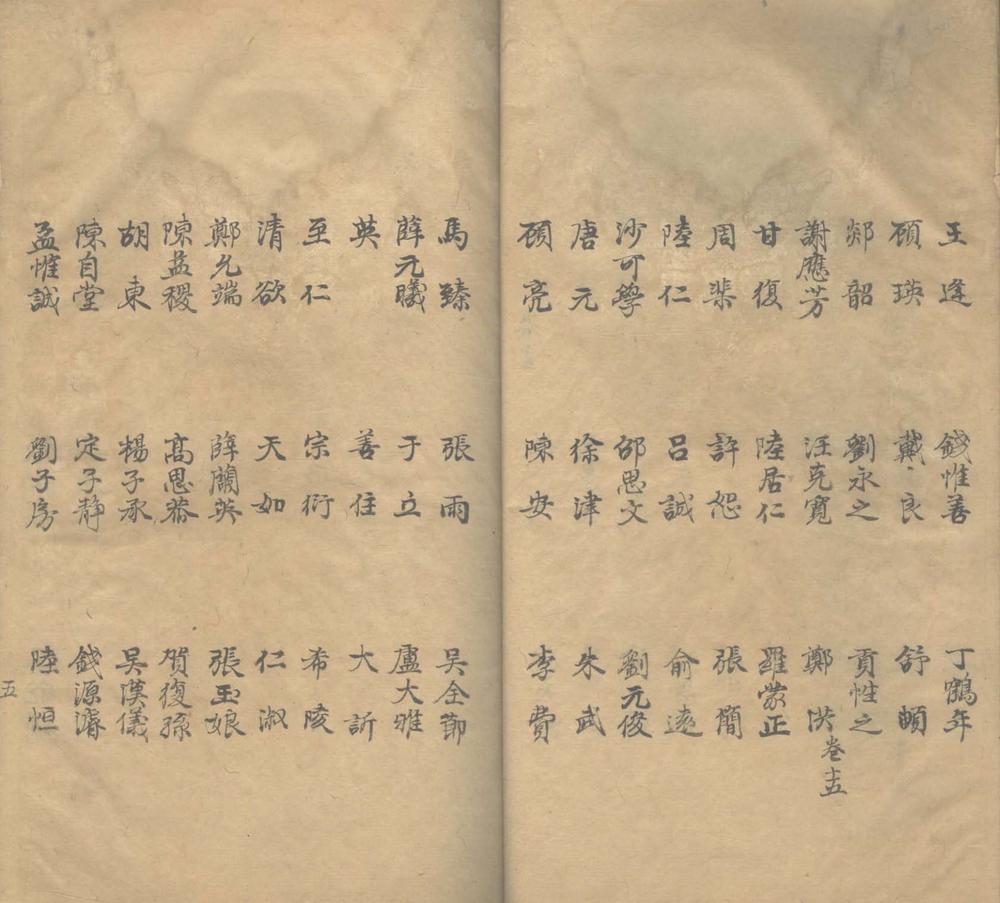 王逢 錢惟善 丁鶴年
顧瑛 戴良 舒頔
郯韶 劉永之 貢性之
謝應芳 汪克寬 鄭洪 卷十五
甘復 陸居仁 羅蒙正
周棐 許恕 張簡
陸仁 呂誠 俞遠
沙可學 邵思文 劉元俊
唐元 徐津 朱武
顧亮 陳安 李費
馬臻 張雨 吳全節
薛元曦 于立 盧大雅
英 善住 大訢
至仁 宗衍 希陵
清欲 天如 仁淑
鄭允端 薛蘭英 張玉娘
陳益稷 高思恭 賀復孫
胡東 楊子承 吳漢儀
陳自堂 定子靜 錢源濬
孟惟誠 劉子房 陸恒
五